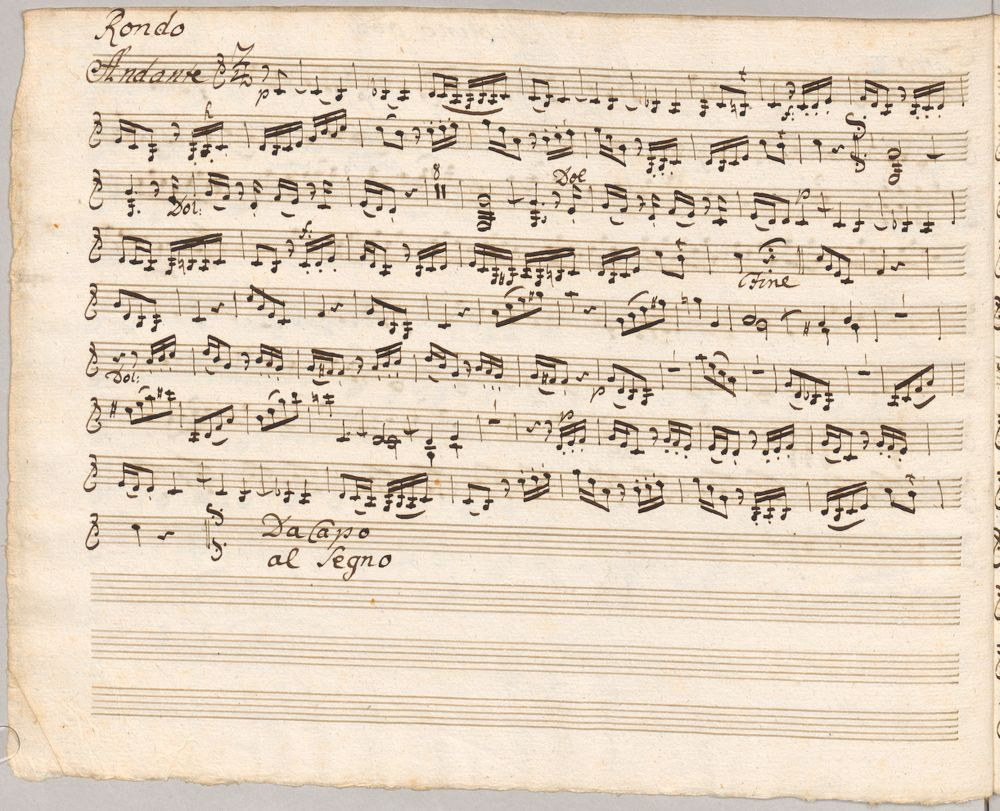 Rondo
Andante 2/4
p f:
f
Dol: 8 Dol p
f: Fine
Dol: p
p
Da Capo
al Segno